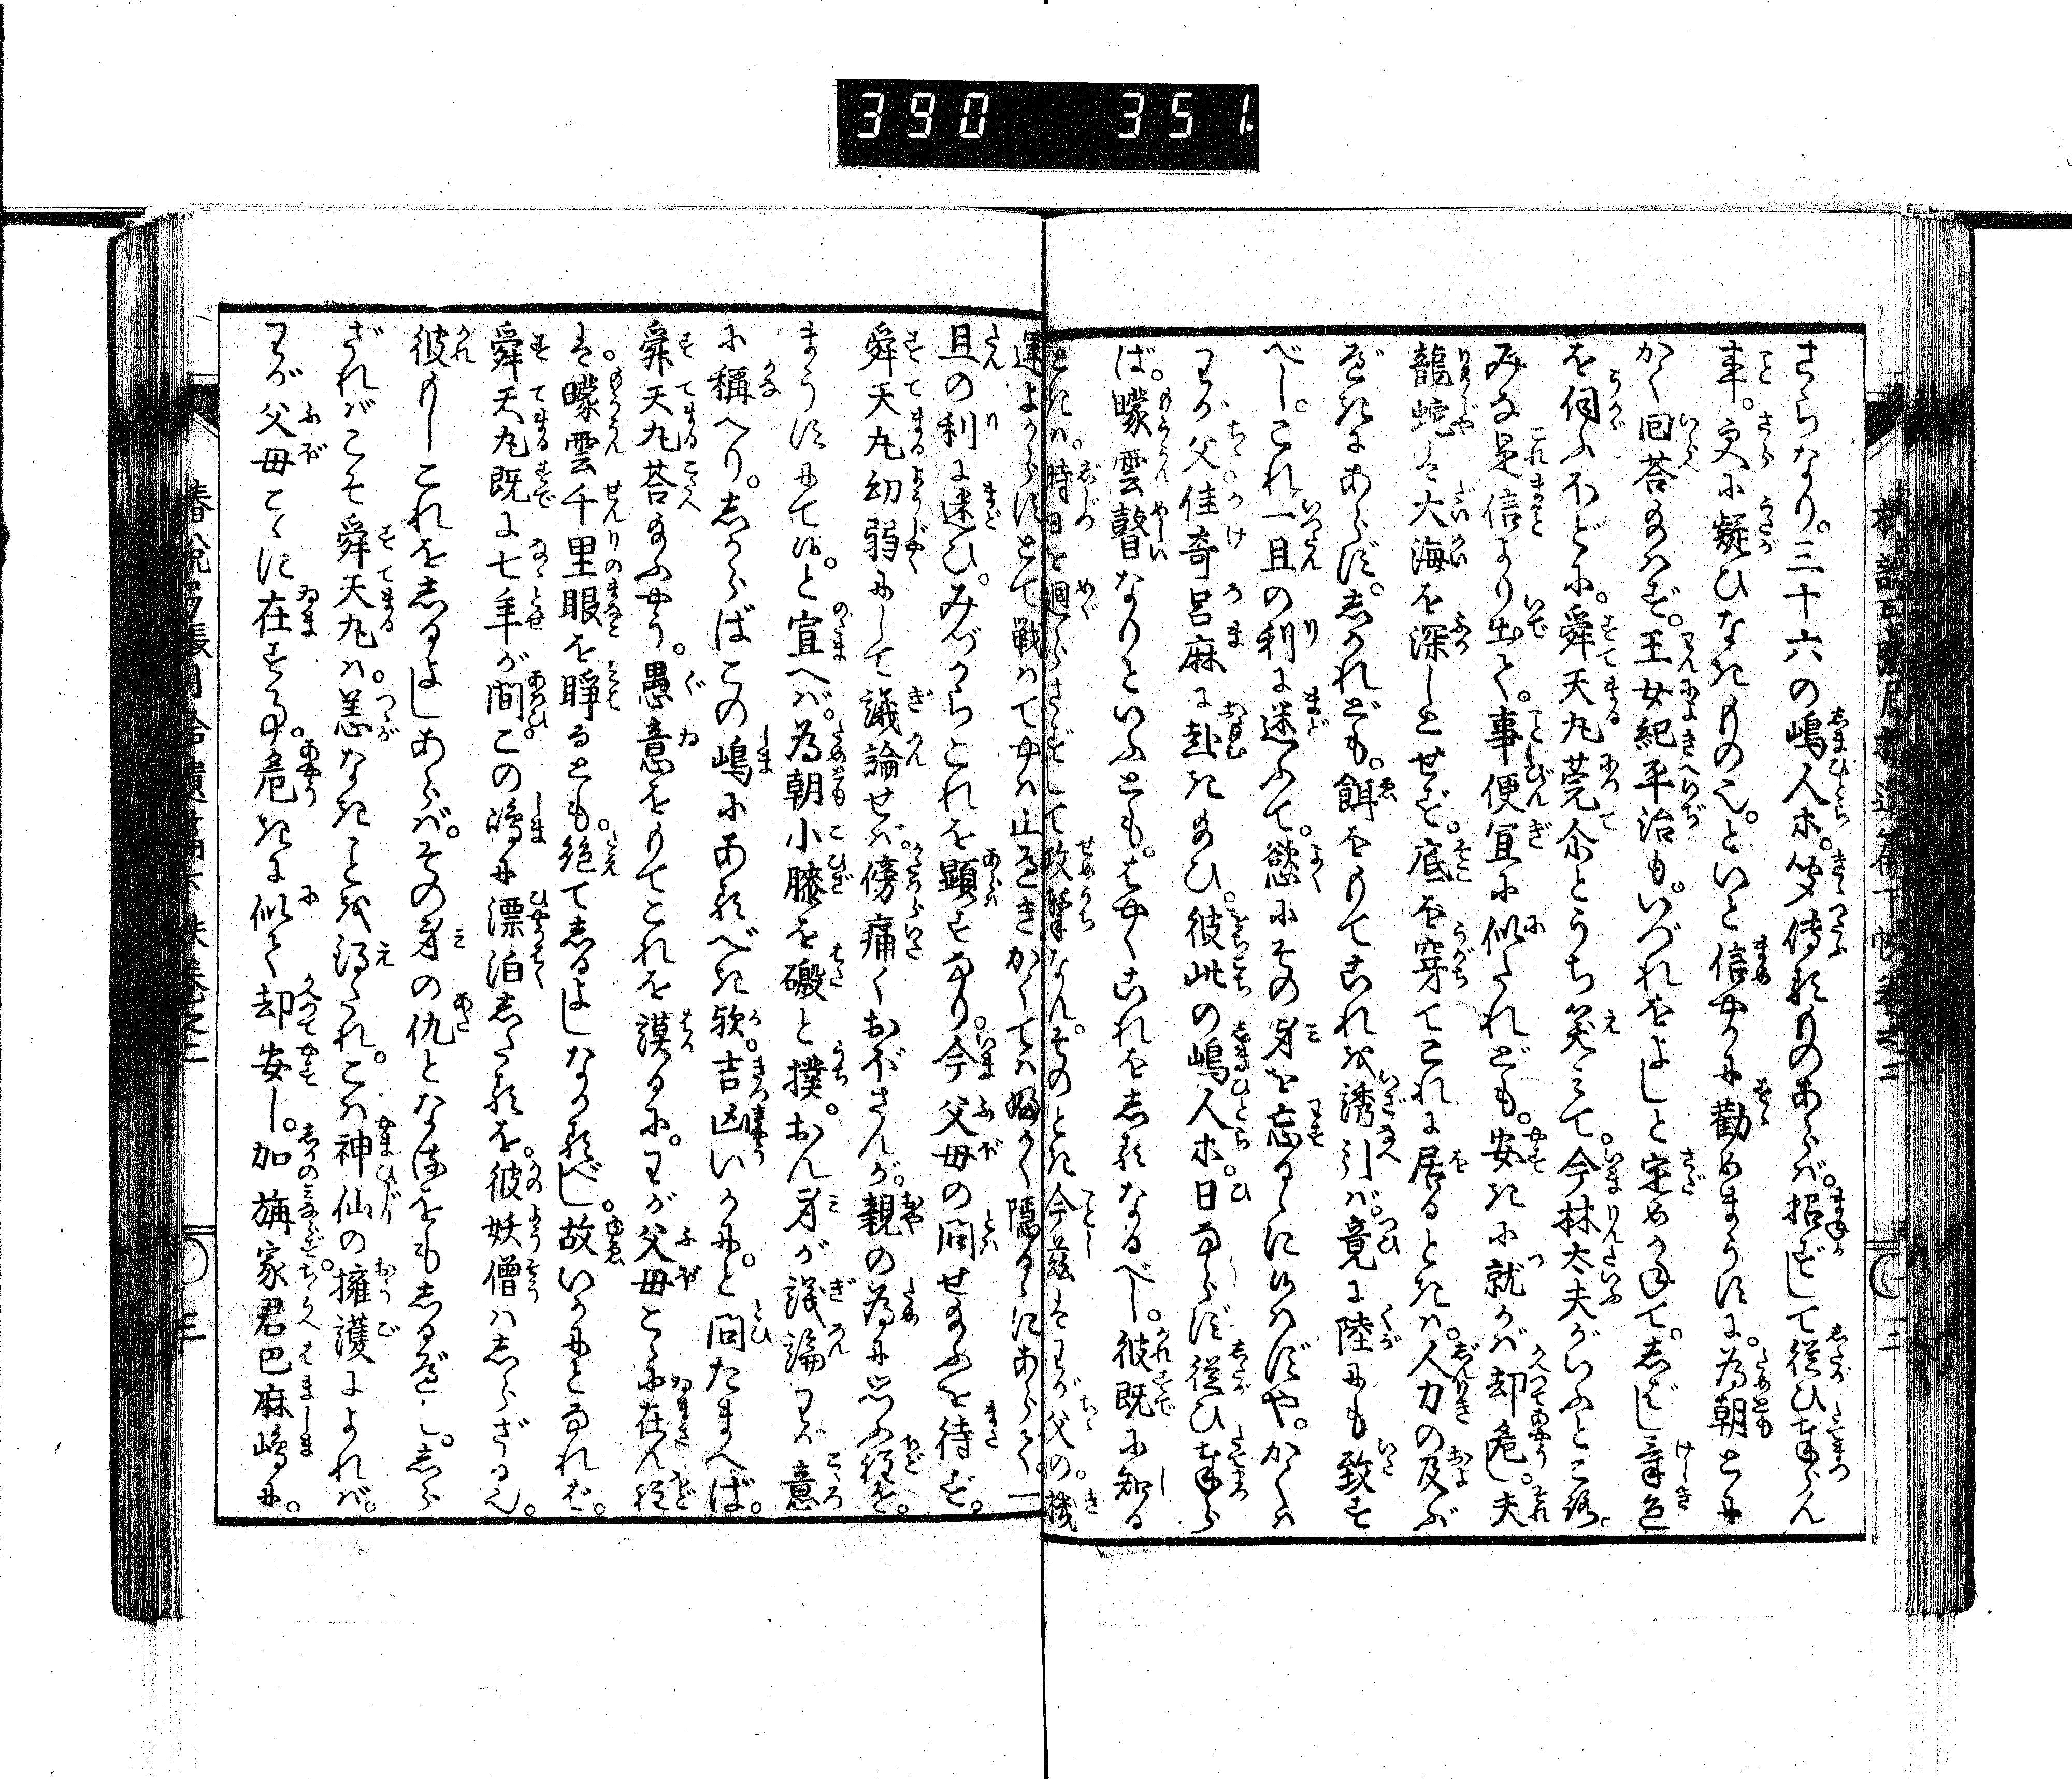 390 351.
さらなり。三十六の嶋人ホ。笑傳るものあらば。招ずして從ひ奉らん
事。更に疑ひなきもの也。といと信やかに勸めまうすに。為朝とに
かく回荅給はず。王女紀平治も。いづれをよしと定めかねて。しばし氣色
を伺ふほどに。舜天丸莞尓とうち笑みて。今林太夫がいふところ。
みな是信より出て。事便宜に似たれども。安きに就かば却危し。夫
龍蛇は大海を深しとせず。底を穿てこれに居るときは。人力の及ぶ
べきにあらず。しかれども。餌をもてこれを誘引ば。竟に陸にも致す
べし。これ一旦の利に迷ふて。慾にその身を忘るゝに候はずや。かくは
わが父佳奇呂麻に赴き給ひ。彼此の嶋人ホ。日ならず從ひ奉ら
ば。曚雲瞽なりといふとも。はやくこれをしるなるべし。彼既に知る
ときは。時日を廻らさずして攻撃なん。そのとき今茲はわが父の。機
運よからずとて戰はでやは止べきかくては婦かく隱るゝにあらで。一
旦の利に迷ひ。みづからこれを顯すなり。今父母の問せ給ふを待ず。
舜天丸幼弱にして議論せば。傍痛くおぼさんが。親の為に思ふ程を。
まうすにて候。と宣へば。為朝小膝を礑と撲。おん身が議論わが意
に稱へり。しからばこの嶋にあるべき歟。吉凶いかに。と問たまへば。
舜天丸荅給ふやう。愚意をもてこれを謨るに。わが父母こゝに在ん程
は。曚雲千里眼を睜るとも。絶てしるよしなかるべし。故いかにとなれば。
舜天丸既に七年が間。この嶋に漂泊したるを。彼妖僧はしらざる也。
彼もしこれをしるよしあらば。その身の仇となるをもしるべし。しら
ざればこそ舜天丸は。恙なきことを得たれ。こは神仙の擁護によれば。
わが父母こゝに在する事。危きに似て却安し。加旃家君巴麻嶋に。